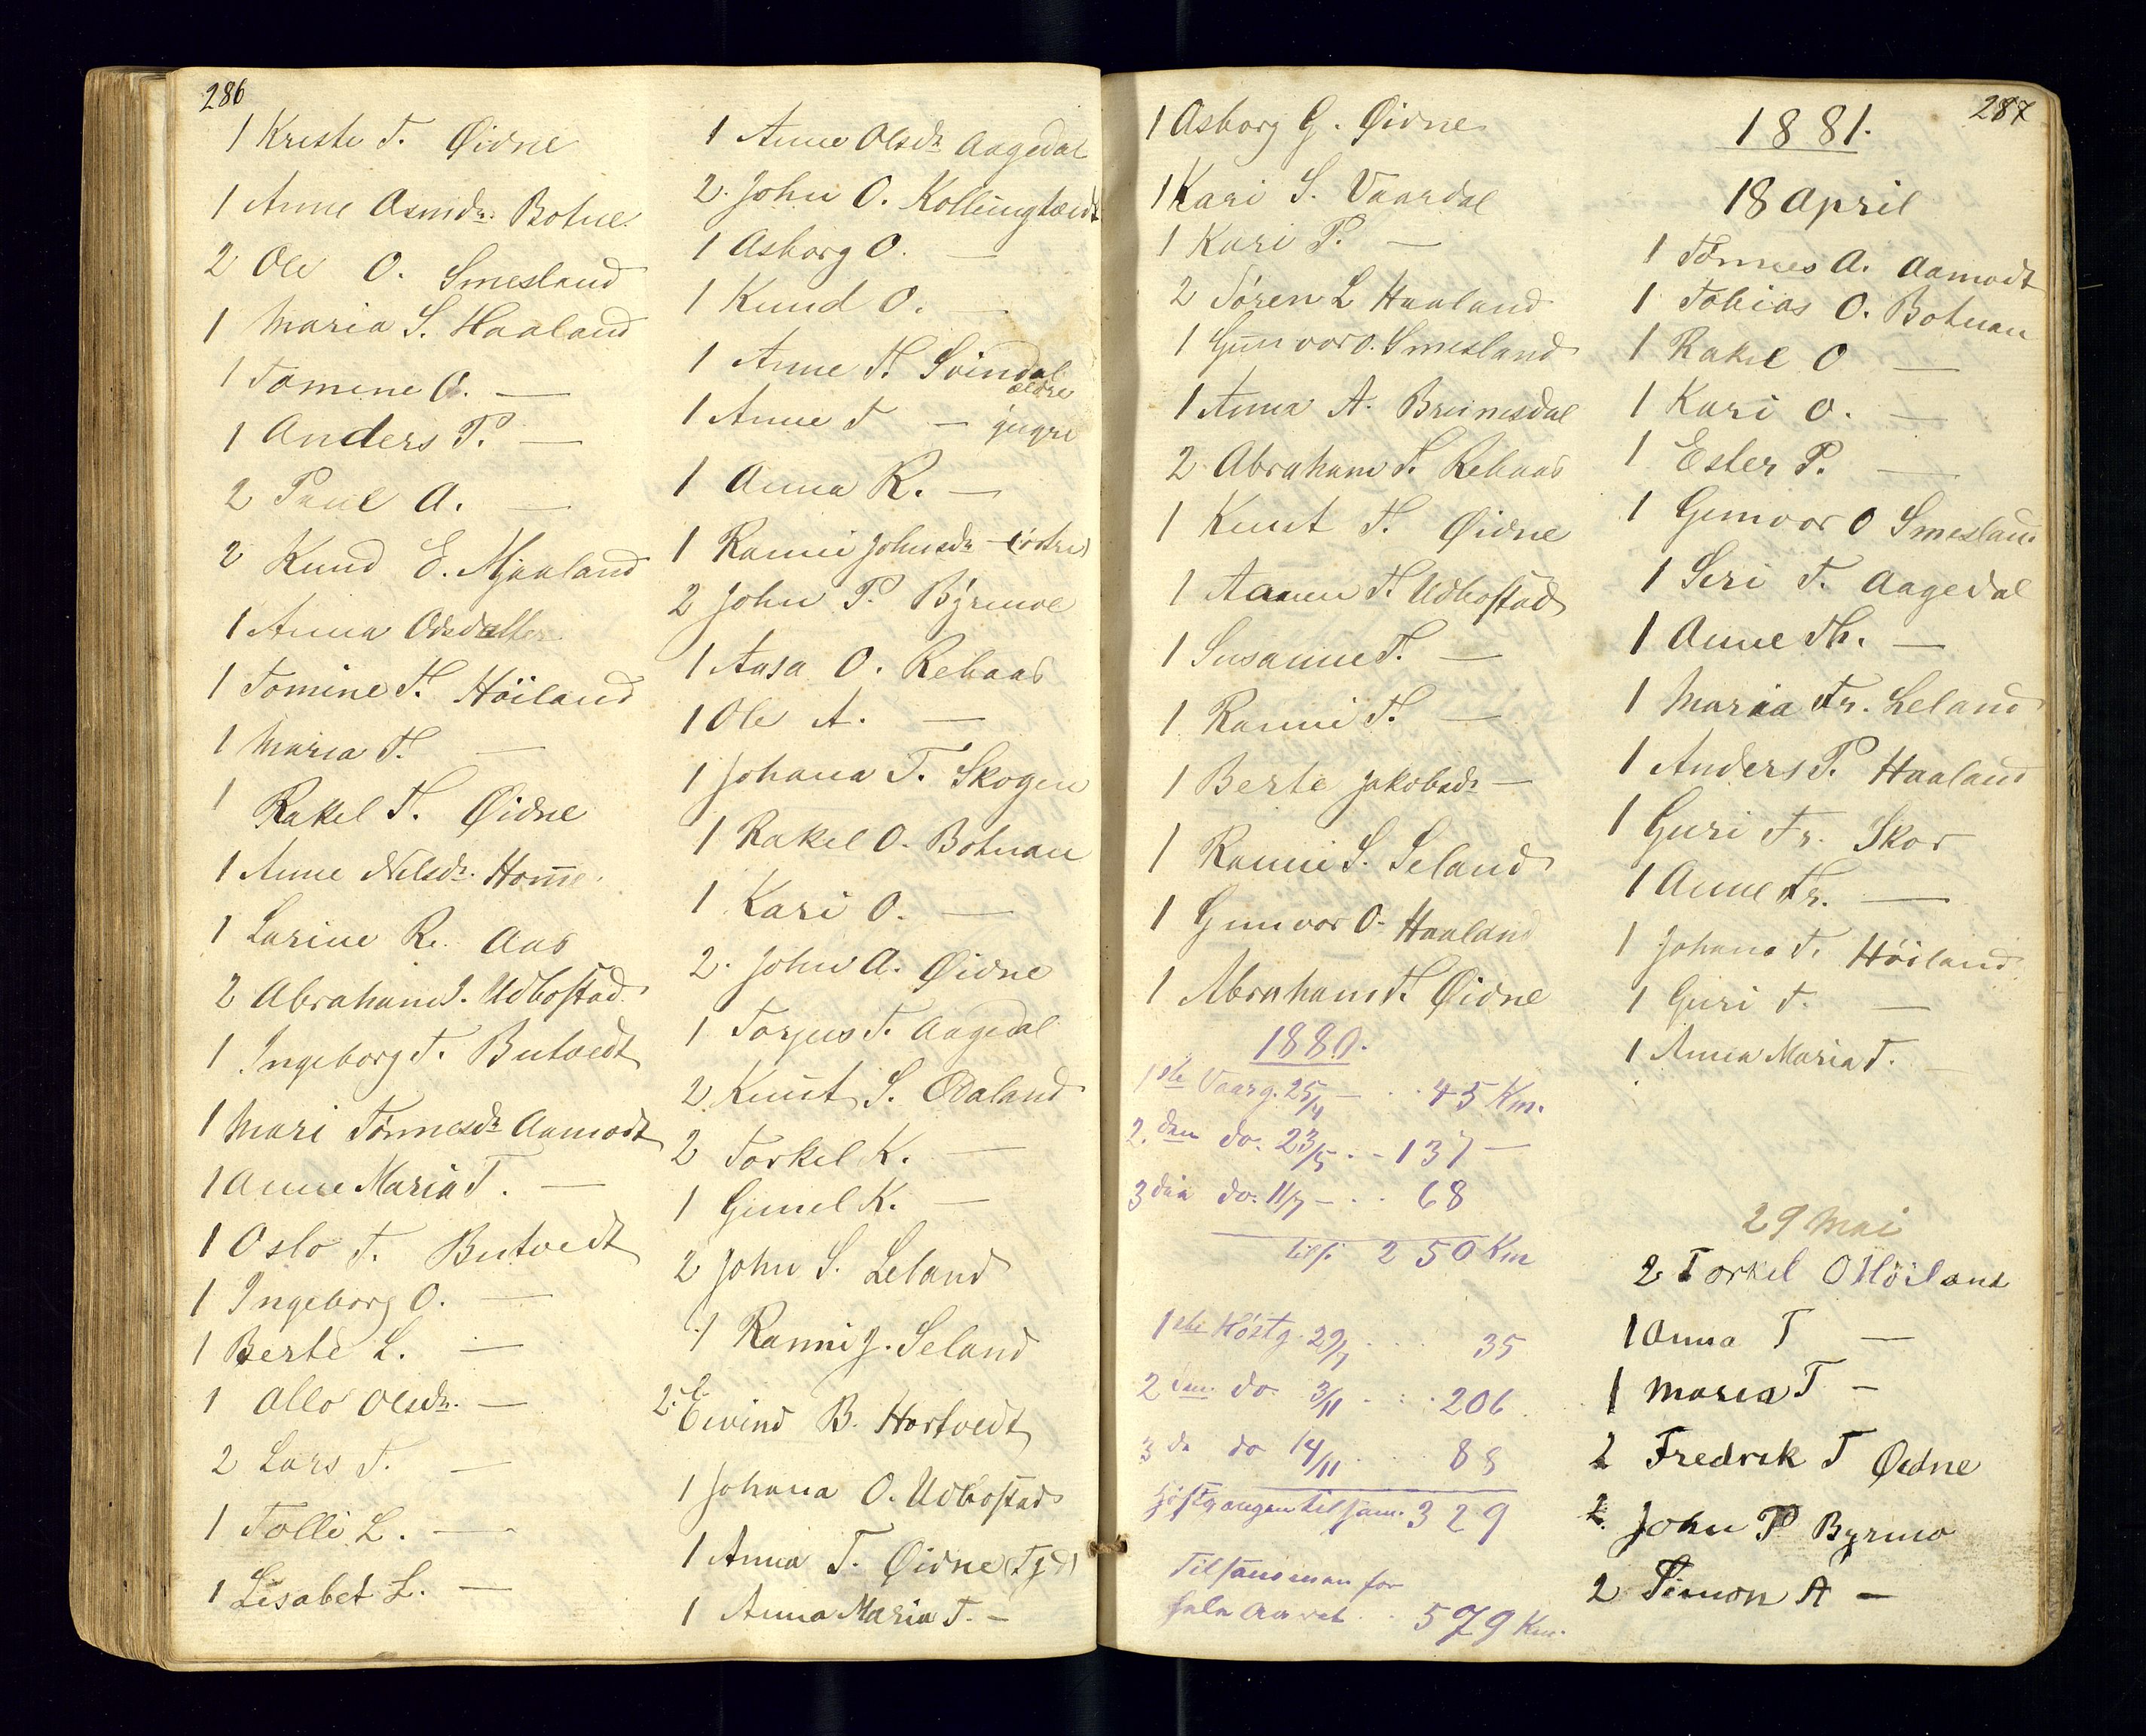 286
1 Kriste T. Øidne
1 Anne Asmdr. Botne
2 Ole O. Smesland
1 Maria S. Haaland
1 Tomine O. —
1 Anders P. —
2 Paul A. —
2 Knud E. Mjaaland
1 Anna Odsdatter
1 Tomine T. Höiland
1 Maria T. —
1 Rakel T. Øidne
1 Anne Nilsdr. Homme
1 Larine R. Aas
2 Abraham J. Udbostad
1 Ingeborg T. Butvedt
1 Mari Tönnesdr Aamodt
1 Anne Maria T. —
1 Oslo T. Butvedt
1 Ingeborg O. —
1 Berte L. —
1 Ollo Olsdr. —
2 Lars T. —
1 Tolli L. —
1 Lisabet L. —
1 Anne Olsdr Aagedal
2. John O. Kollungtveidt
1 Asborg O. —
1 Knud O. —
1 Anne T. Svindal
ældre
1 Anne T — yngre
1 Anna R. —
1 Ranni Johnsdr — (östre)
2 John P. Byrmoe
1 Aasa O. Rebaas
1 Ole A. —
1 Johana T. Skogen
1 Rakel O. Botnan
1 Kari O. —
2. John A. Øidne
1 Torjus T. Aagedal
2. Knut S. Odaland
2 Torkel K. —
1 Gunel K. —
2 John S. Leland
1 Ranni J. Seland
2. Eivind B. Hortvedt
1 Johana O. Udbostad
1 Anna T. Øidne (Tjd)
1 Anna Maria T. —
287
1 Asborg G. Øidne
1 Kari S. Vaardal
1 Kari P. —
2 Sören L Haaland
1 Gunvor O. Smesland
1 Anna A. Bruunesdal
2 Abraham T. Rebaas
1 Knut T. Øidne
1 Aanen T. Udbostad
1 Susanne T. —
1 Ranni T. —
1 Berte Jakobsdr —
1 Ranni S. Seland
1 Gunvor O. Haaland
1 Abraham T. Øidne
1880.
1ste Vaarg. 25/4 — . . 45 Km.
2.den do. 23/5 . - 137 —
3die do. 11/7 — . . 68
tils. 250 Km
1ste Höstg. 29/9 . . . 35
2den do. 3/11 . : . 206
3die do 14/11 . . . 88
Höstgangen tilsam. 329
Tilsamman for
hele Aaret . . 579 Km.
1881.
18 April
1 Tönnes A. Aamodt
1 Tobias O. Botnan
1 Rakel O —
1 Kari O. —
1 Ester P. —
1 Gunvor O Smesland
1 Seri T. Aagedal
1 Anne Th. —
1 Maria Tr. Leland
1 Anders P. Haaland
1 Guri Tr. Skor
1 Anne Tr. —
1 Johana T. Höiland
1 Guri T. —
1 Anna Maria T. —
29 Mai
2 Torkel O Höiland
1 Anna T —
1 Maria T —
2 Fredrik T Øidne
2. John P Byrmo
2 Simon A —